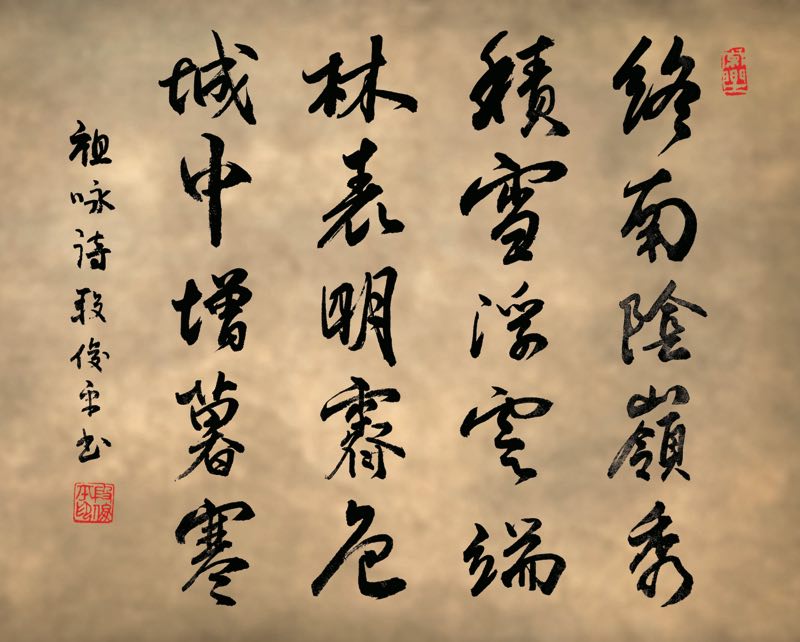 終南陰嶺秀
積雪浮雲端
林表明霽色
城中增暮寒
祖咏詩段俊平书